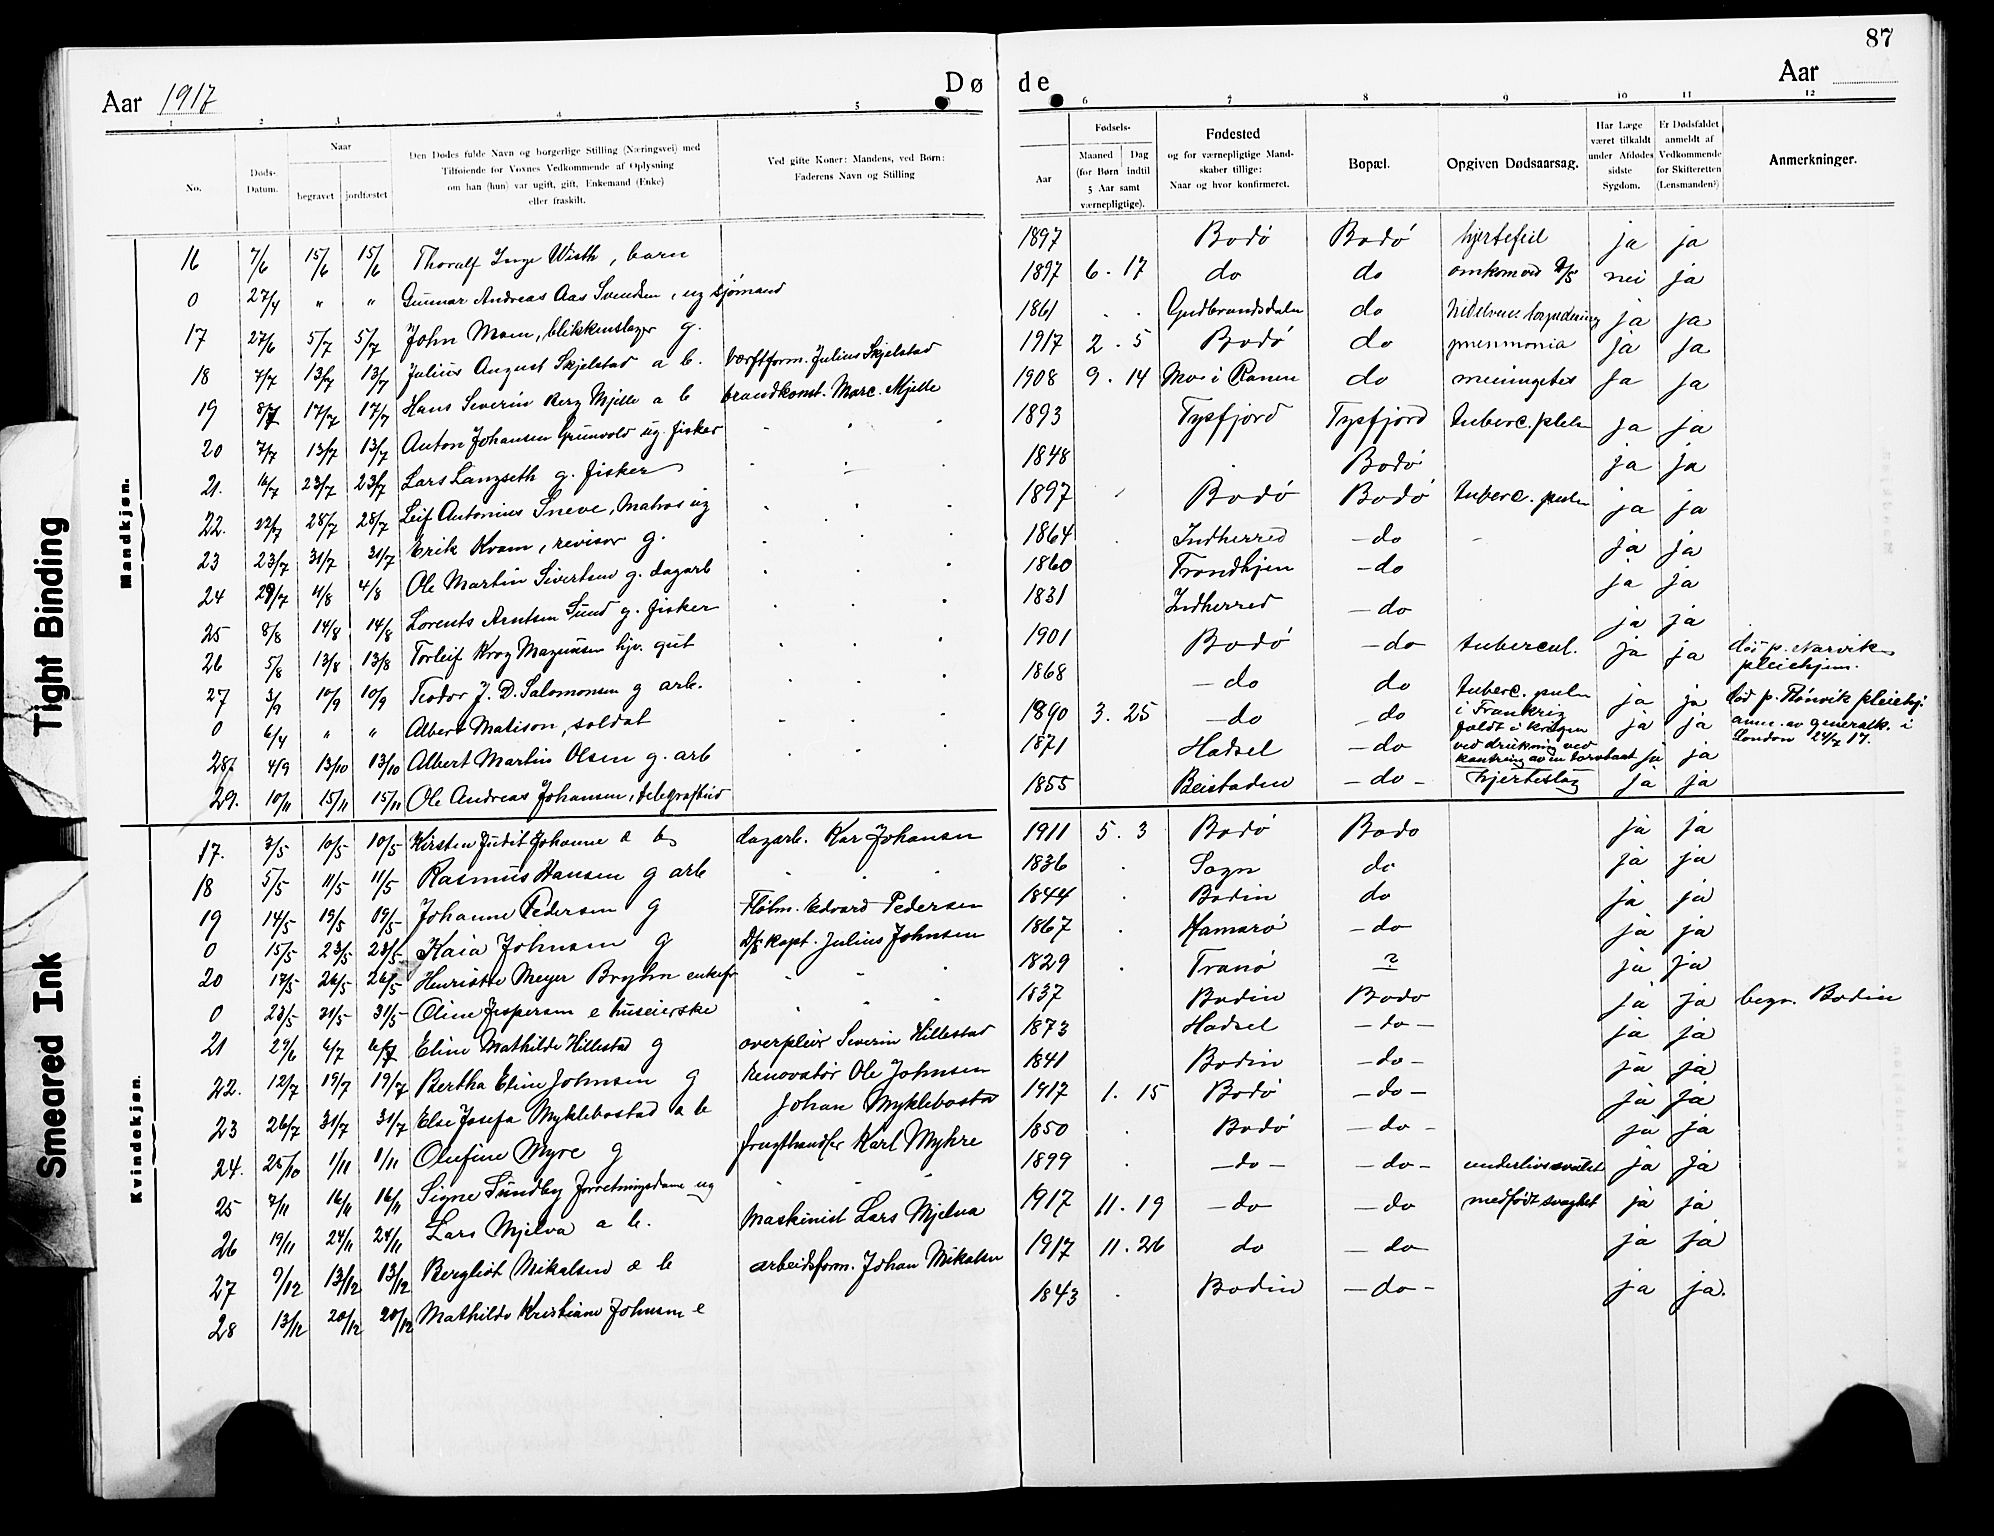 87
Aar 1917
Dø de
Aar
1 2 3 4 5 6 7 8 9 10 11 12
No.
Døds-Datum.
Naar
begravet jordfæstet
Den Dødes fulde Navn og borgerlige Stilling (Næringsvei) med
Tilføiende for Voxnes Vedkommende af Oplysning
om han (hun) var ugift, gift, Enkemand (Enke)
eller fraskilt.
Ved gifte Koner: Mandens, ved Børn:
Faderens Navn og Stilling
Fødsels-
Aar
Maaned Dag
(for Børn indtil
5 Aar samt
værnepligtige).
Fødested
og for værnepligtige Mand-
skaber tillige:
Naar og hvor konfirmeret.
Bopæl.
Opgiven Dødsaarsag.
Har Læge
været tilkaldt
under Afdødes
sidste
Sygdom.
Er Dødsfaldet
anmeldt af
Vedkommende
for Skifteretten
(Lensmanden?)
Anmerkninger.
Mandkjøn.
16 7/6 15/6 15/6 Thoralf Inge Wisth, barn 1897 Bodö Bodö hjertefeil ja ja
0 27/4 " " Gunnar Andreas Aas Svendsen, ug sjømand 1897 6. 17 do do omkom ved nei ja
17 27/6 5/7 5/7 John Moen, blikkenslager g. 1861 Gudbrandsdalen do torpedering ja ja
18 7/7 13/7 13/7 Julius August Skjelstad a b. Værftform. Julius Skjelstad 1917 2. 5 Bodö do pneumonia ja ja
19 8/7 17/7 17/7 Hans Severin Berg Mjelle a b brandkonst. Marc. Mjelle 1908 9. 14 Mo i Ranen do meningetes ja ja
20 7/7 13/7 13/7 Anton Johansen Grunvold ug. fisker 1893 Tysfjord Tysfjord tuberc. pulm ja ja
21. 16/7 23/7 23/7 Lars Langseth g. fisker 1848 Bodö ja ja
22. 22/7 28/7 28/7 Leif Antonius Sneve, Matros ug 1897 Bodö Bodö tuberc. pulm ja ja
23 23/7 31/7 31/7 Erik Kvam, revisor g. 1864 Indherred - do - ja ja
24 29/7 4/8 4/8 Ole Martin Sivertsen g. dagarb 1860 Trondhjem - do ja ja
25 8/8 14/8 14/8 Lorents Arntsen Sund g. fisker 1831 Indherred - do ja ja
26 5/8 13/8 13/8 Torleif Krog Magnusen hjv. gut 1901 Bodö - do tubercul. ja ja död p. Narvik
pleiehjem.
27 3/9 10/9 10/9 Teodor J. D. Salomonsen g arb. 1868 - do do tuberc. pulm ja ja död p. pleiehj.
0 6/4 " " Albert Matison, soldat 1890 3. 25 - do - do i Frankrig
faldt i krigen ja ja anm. av generalk. i
London 24/7 17.
28. 4/9 13/10 13/10 Albert Martin Olsen g. arb 1871 Hadsel - do ved drukning ved
kantring av en torvbaat ja ja
29. 10/11 15/11 15/11 Ole Andreas Johansen, telegrafbud 1855 Beistaden - do - hjerteslag ja ja
Kvindekjøn.
17. 3/5 10/5 10/5 Kirsten Judit Johanne a b dagarb. Kar Johansen 1911 5. 3 Bodö Bodo ja ja
18 5/5 11/5 11/5 Rasmus Hansen g arb 1836 Sogn do ja ja
19 14/5 19/5 19/5 Johanne Pedersen g Edvard Pedersen 1844 Bodin do ja ja
0 15/5 23/5 23/5 Kaia Johnsen g D/S kapt. Julius Johnsen 1867 Hamarö - do - ja ja
20 17/5 26/5 26/5 Henriette Meyer Bryhn enkefr 1829 Tranö ? ja ja
0 23/5 31/5 31/5 Oline Jespersen e huseierske 1837 Bodin Bodo ja ja begr. Bodin
21 29/6 6/7 6/7 Eline Mathilde Hillestad g overpleier Severin Hillestad 1873 Hadsel - do - ja ja
22. 12/7 19/7 19/7 Bertha Eline Johnsen g Renovatör Ole Johnsen 1841 Bodin - do - ja ja
23 26/7 31/7 31/7 Else Josefa Myklebostad a b Johan Myklebostad 1917 1. 15 Bodö - do - ja ja
24. 25/10 1/11 1/11 Olufine Myre g frugthandler Karl Myhre 1850 Bodö - do - ja ja
25 7/11 16/11 16/11 Signe Sundby forretningsdame ug 1899 - do - - do - underlivssvulst ja ja
26 19/11 24/11 24/11 Lars Mjelva a b. Maskinist Lars Mjelva 1917 11. 19 - do - - do medfödt svaghet ja ja
27 9/12 13/12 13/12 Bergliot Mikalsen a b arbeidsform. Johan Mikalsen 1917 11. 26 do - do ja ja
28 13/12 20/12 20/12 Mathilde Kristiane Johnsen e 1843 Bodin - do - ja ja.
Tight Binding
Smeared Ink